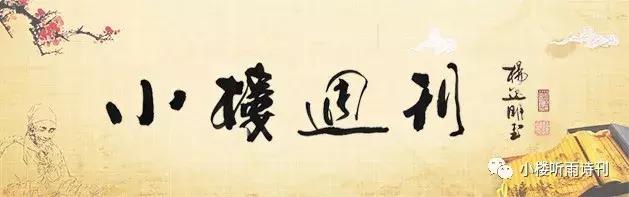 小樓週刊
小楼听雨诗刊